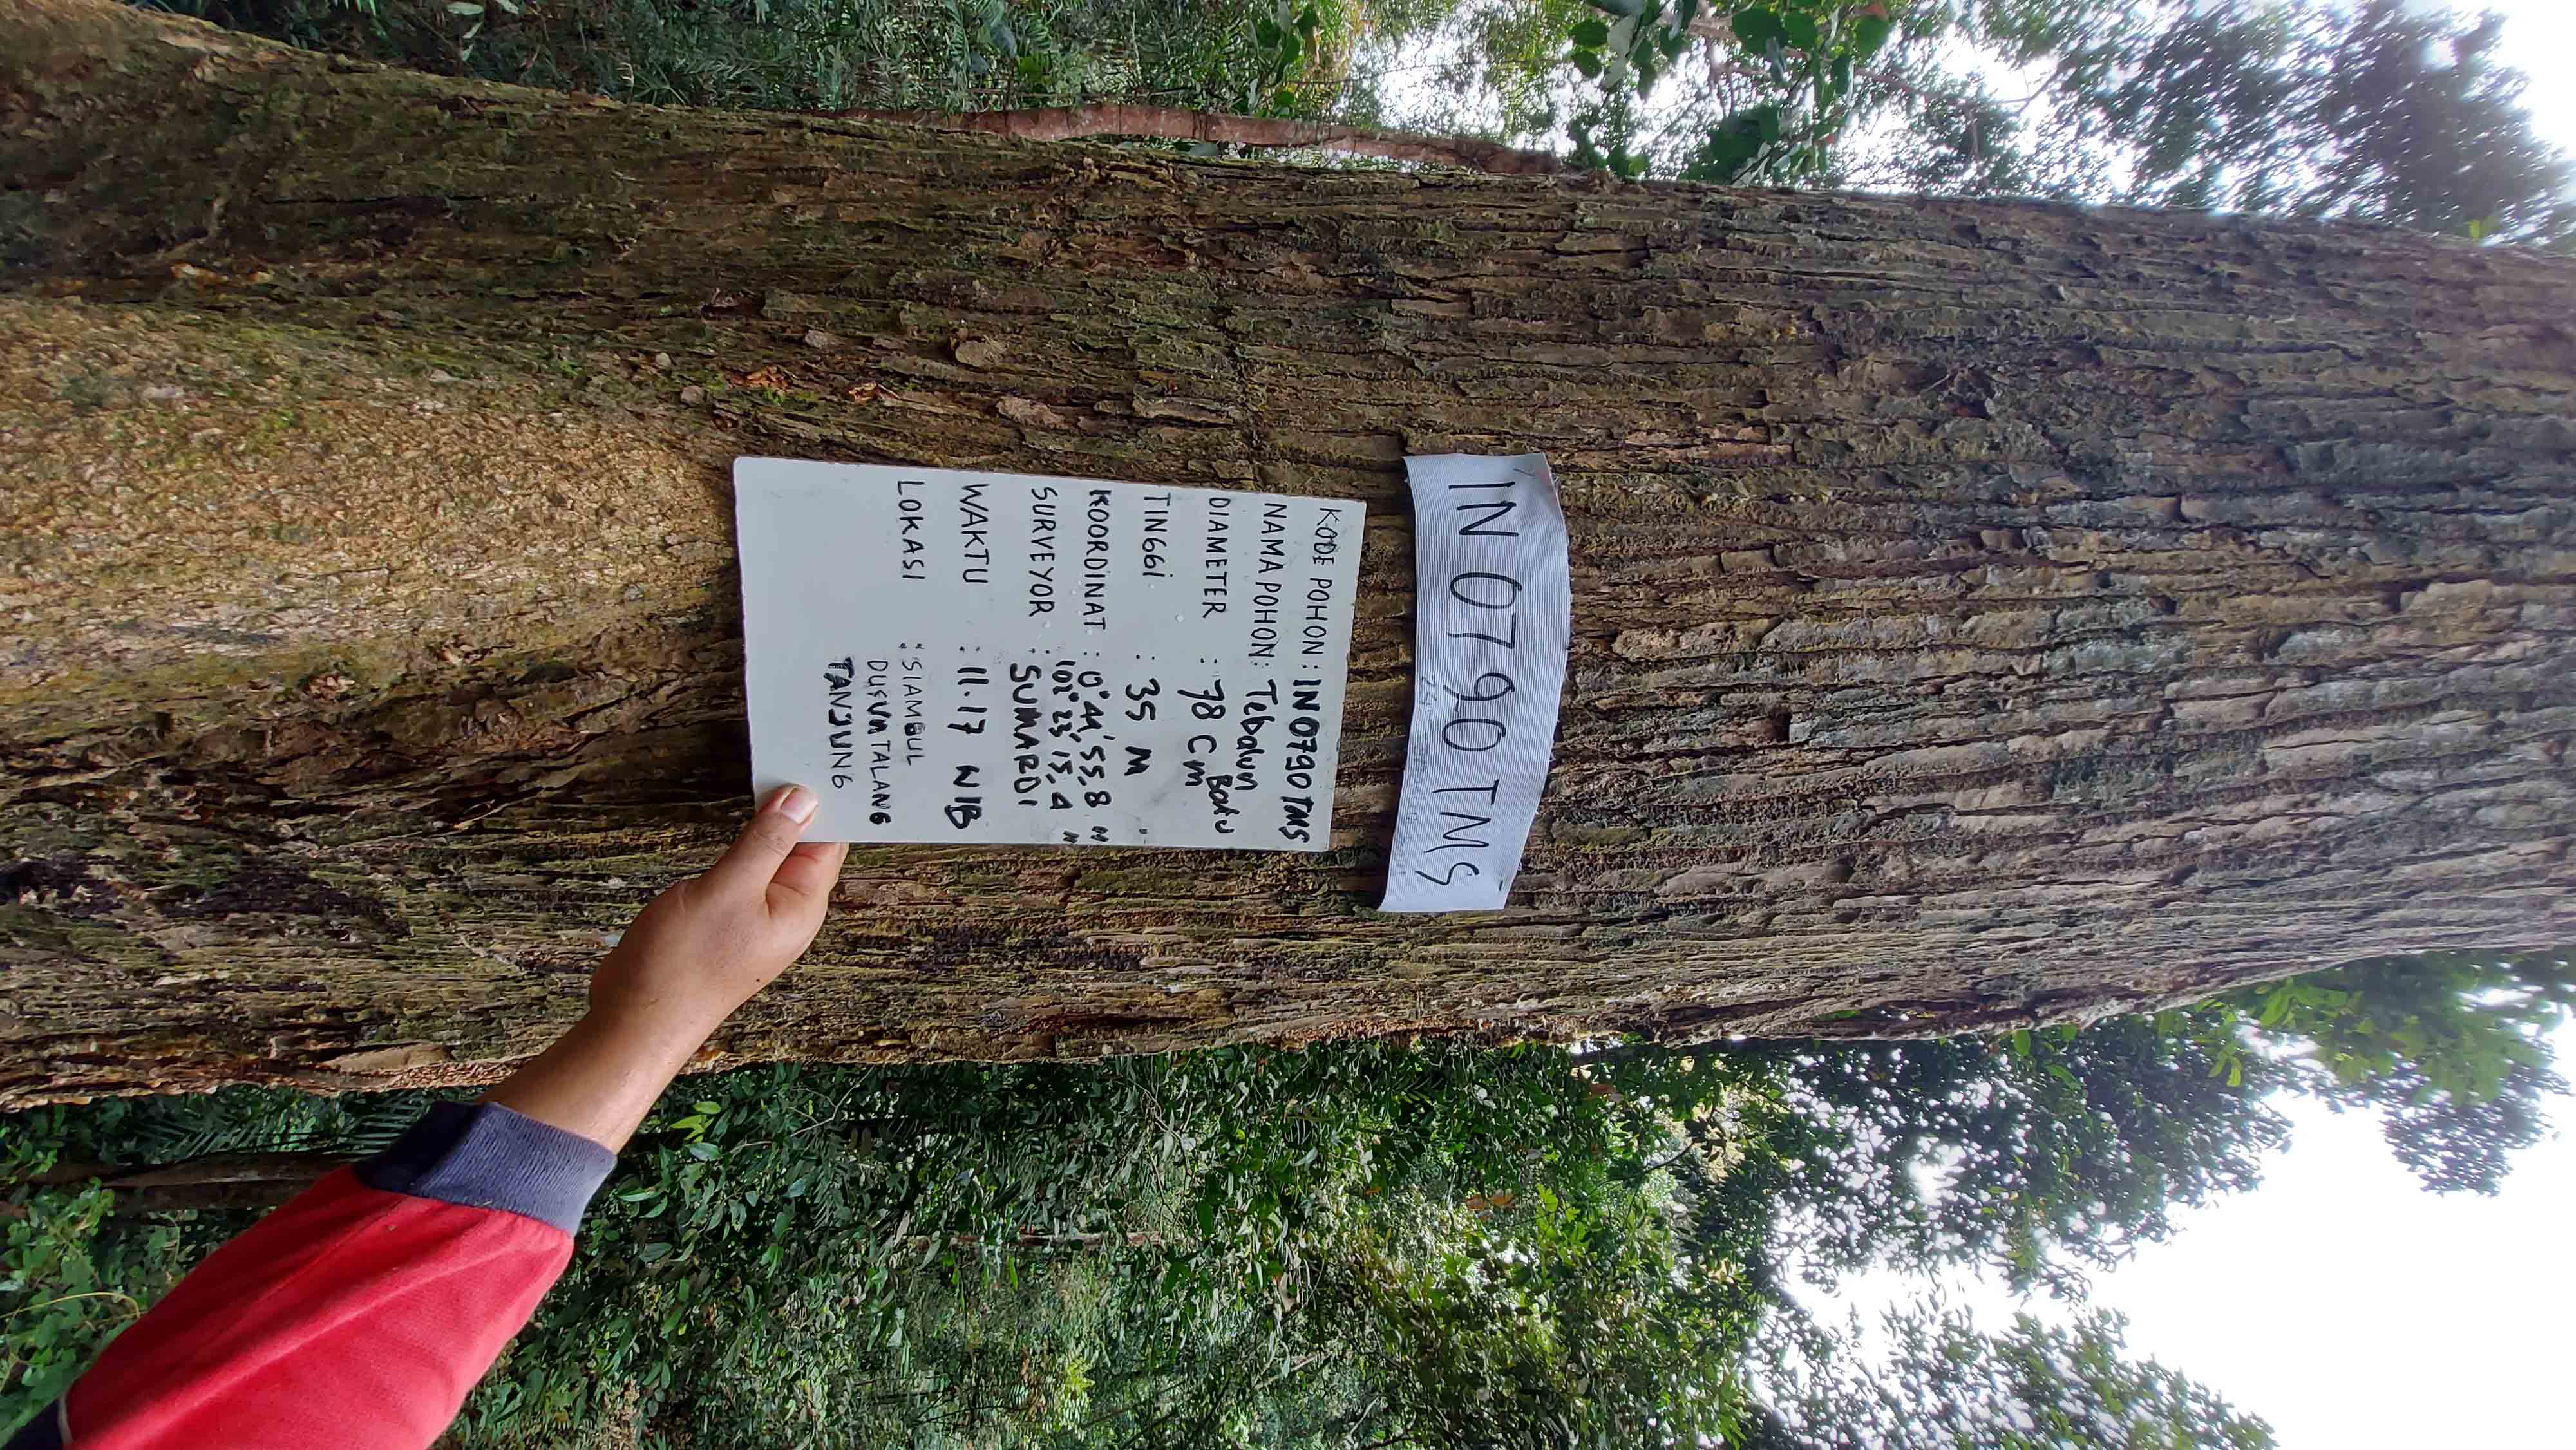 IN 0790 TMS
KODE POHON : IN 0790 TMS
NAMA POHON : Tebalun Batu
DIAMETER : 78 Cm
TINGGI : 35 M
KOORDINAT : 0° 44' 55,8 "
102° 25' 15,4 "
SURVEYOR : SUMARDI
WAKTU : 11.17 WIB
LOKASI : SIAMBUL
DUSUN TALANG
TANJUNG